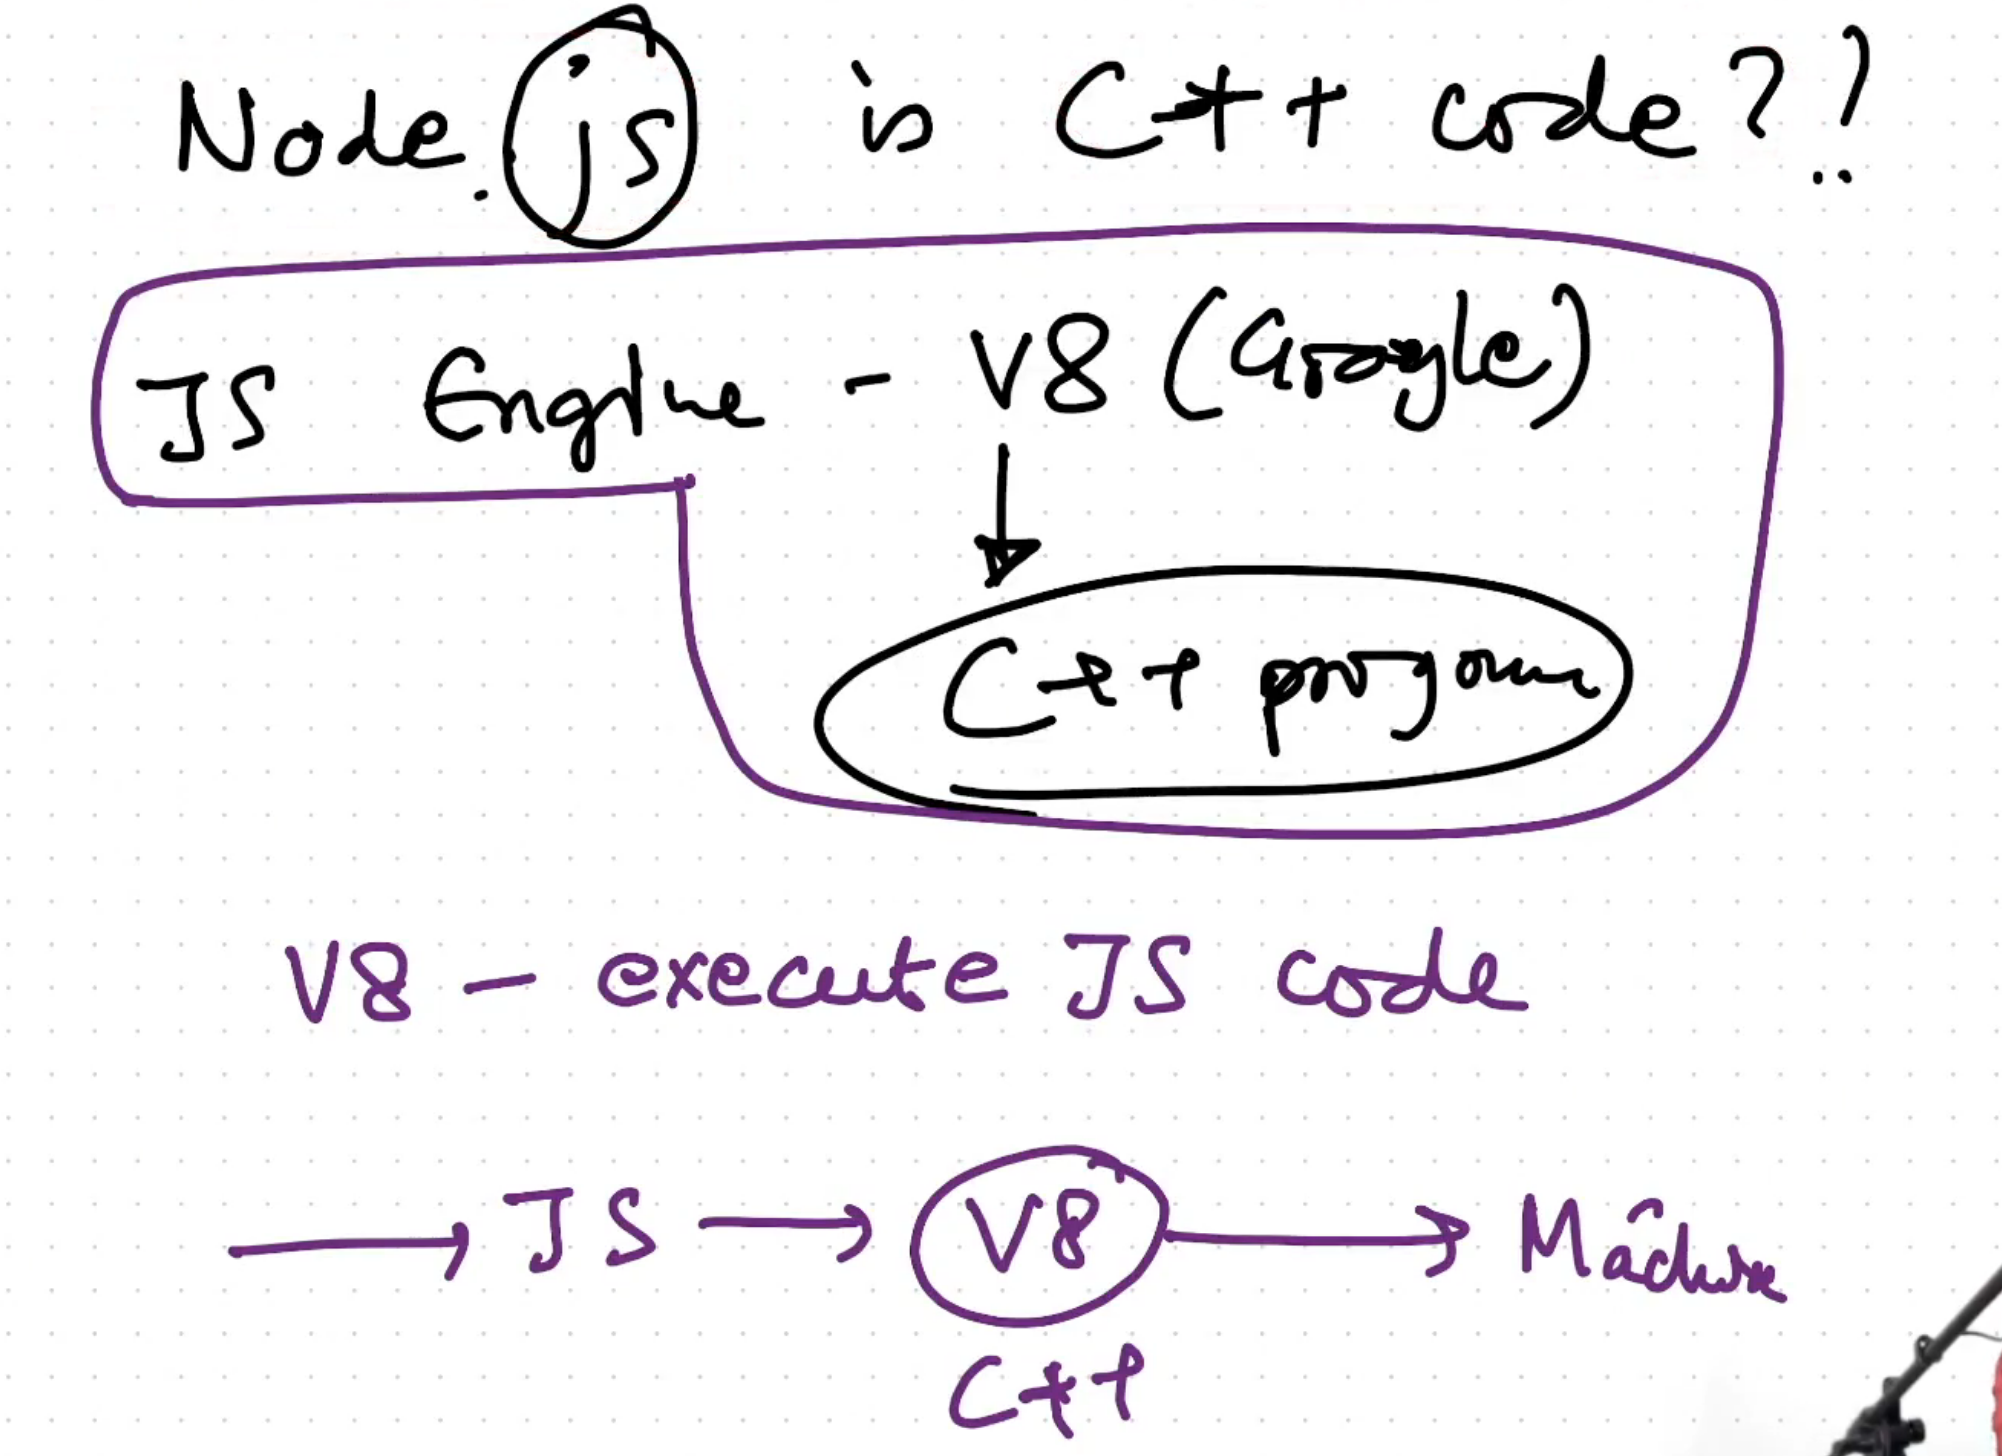 Node.js is C++ code??
JS Engine - V8 (Google)
C++ program
V8 - execute JS code
JS V8 Machine
C++